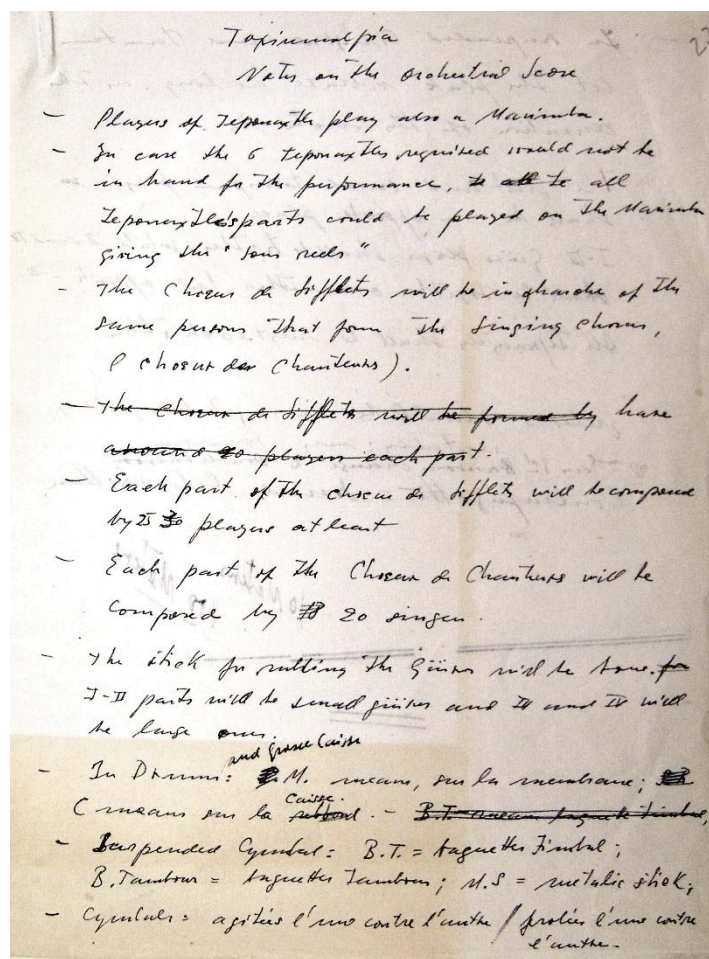 Notes on the orchestral Score
- Players of Teponaxtle play also a Marimba.
- In case the 6 teponaxtles required would not be
in hand for the performance, to all te all
Teponaxtles parts could be played on the Marimba
giving the "sons reels"
- The Choeur de Sifflets will be in charche of the
same persons that form the Singing Chorus,
(Choeur des Chanteurs).
- The Choeur de Sifflets will be formed by have
around 20 players each part.
- Each part of the choeur de Sifflets will be composed
by 25 30 players at least
- Each part of the Choeur de Chanteurs will be
composed by 20 singers.
- The stick for rubbing the Güiros will be bone. for
I-II parts will be small güiros and III and IV will
be large ones.
and Grosse Caisse
- In Drums: M. means, sur la membrane;
Caisse.
C means sur la - B.T. means baguette timbal,
- Suspended Cymbal: B.T. = baguettes Timbal;
B. Tambour = baguettes Tambour; M.S = metalic stick;
- Cymbals: agitées l'une contre l'autre / frotées l'une contre
l'autre -